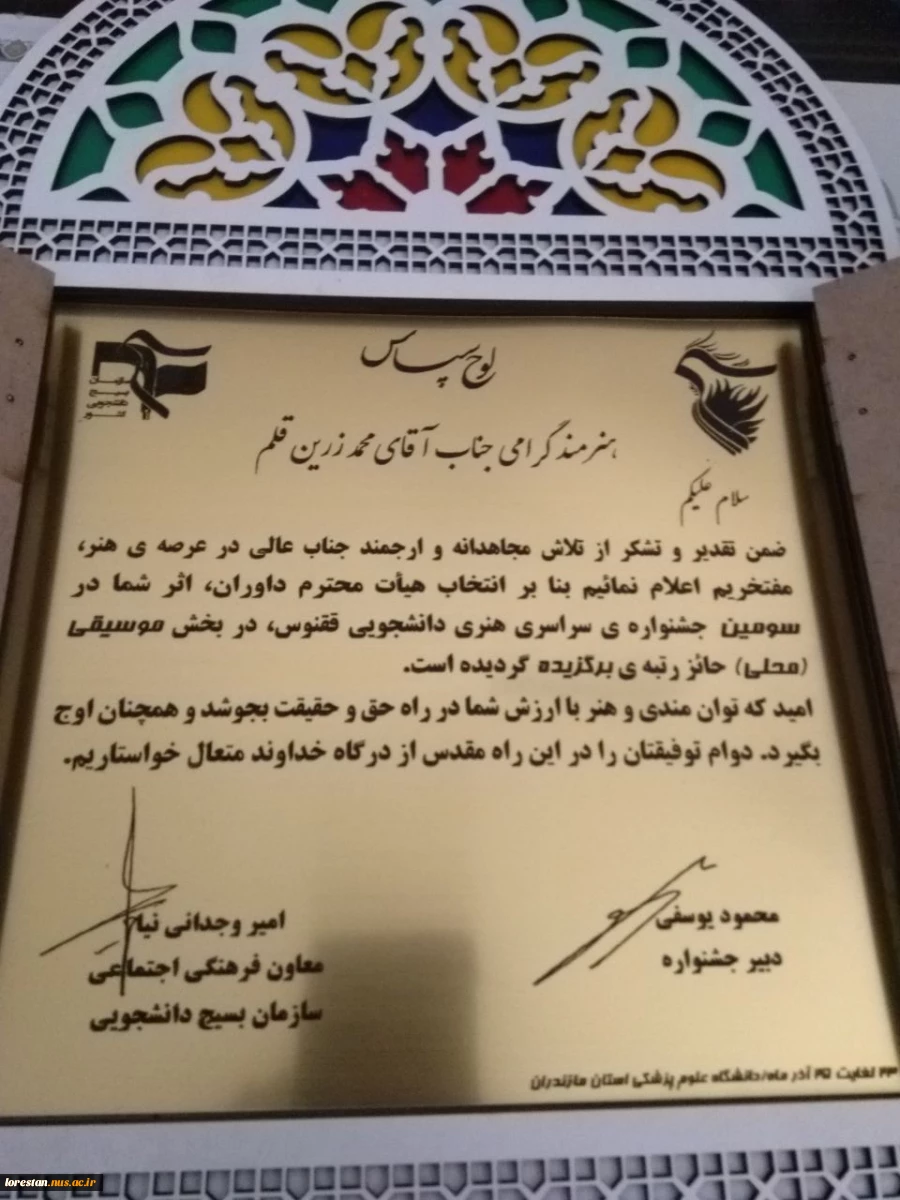 لوح سپاس
هنرمند گرامی جناب آقای محمد زرین قلم
سلام علیکم
ضمن تقدیر و تشکر از تلاش مجاهدانه و ارجمند جناب عالی در عرصه ی هنر،
مفتخریم اعلام نمائیم بنا بر انتخاب هیأت محترم داوران، اثر شما در
سومین جشنواره ی سراسری هنری دانشجویی ققنوس، در بخش موسیقی
(محلی) حائز رتبه ی برگزیده گردیده است.
امید که توان مندی و هنر با ارزش شما در راه حق و حقیقت بجوشد و همچنان اوج
بگیرد. دوام توفیقتان را در این راه مقدس از درگاه خداوند متعال خواستاریم.
محمود یوسفی
دبیر جشنواره
امیر وجدانی نیا
معاون فرهنگی اجتماعی
سازمان بسیج دانشجویی
۲۳ لغایت ۲۵ آذر ماه/دانشگاه علوم پزشکی استان مازندران
lorestan.nus.ac.ir